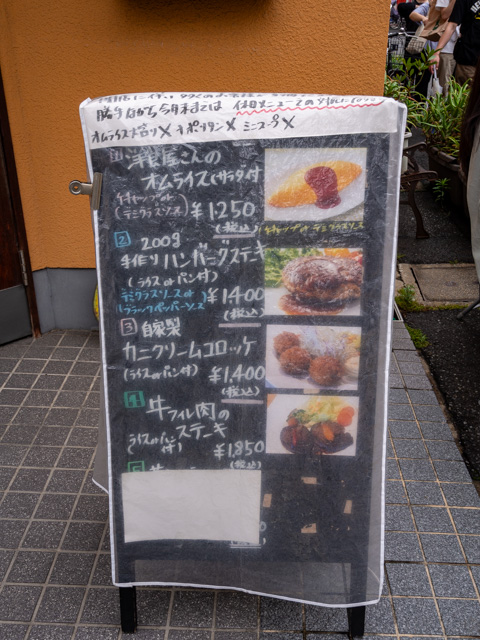 勝手ながら今月末までは 休日メニューの
オムライス大盛り✗ ナポリタン✗ ミニスープ✗
1 洋食屋さんの
オムライス(サラダ付
(ケチャップor
デミグラスソース)
¥1250
(税込)
ケチャップor デミグラスソース
2 200g
手作りハンバーグステキ
(ライスorパン付)
デミグラスソースor
(ブラックペッパーソース)
¥1400
(税込)
3 自家製
カニクリームコロッケ
(ライスorパン付)
¥1,400
(税込)
4 牛フィレ肉の
ステーキ
(ライスorパン
付)
¥1,850
(税込)
5